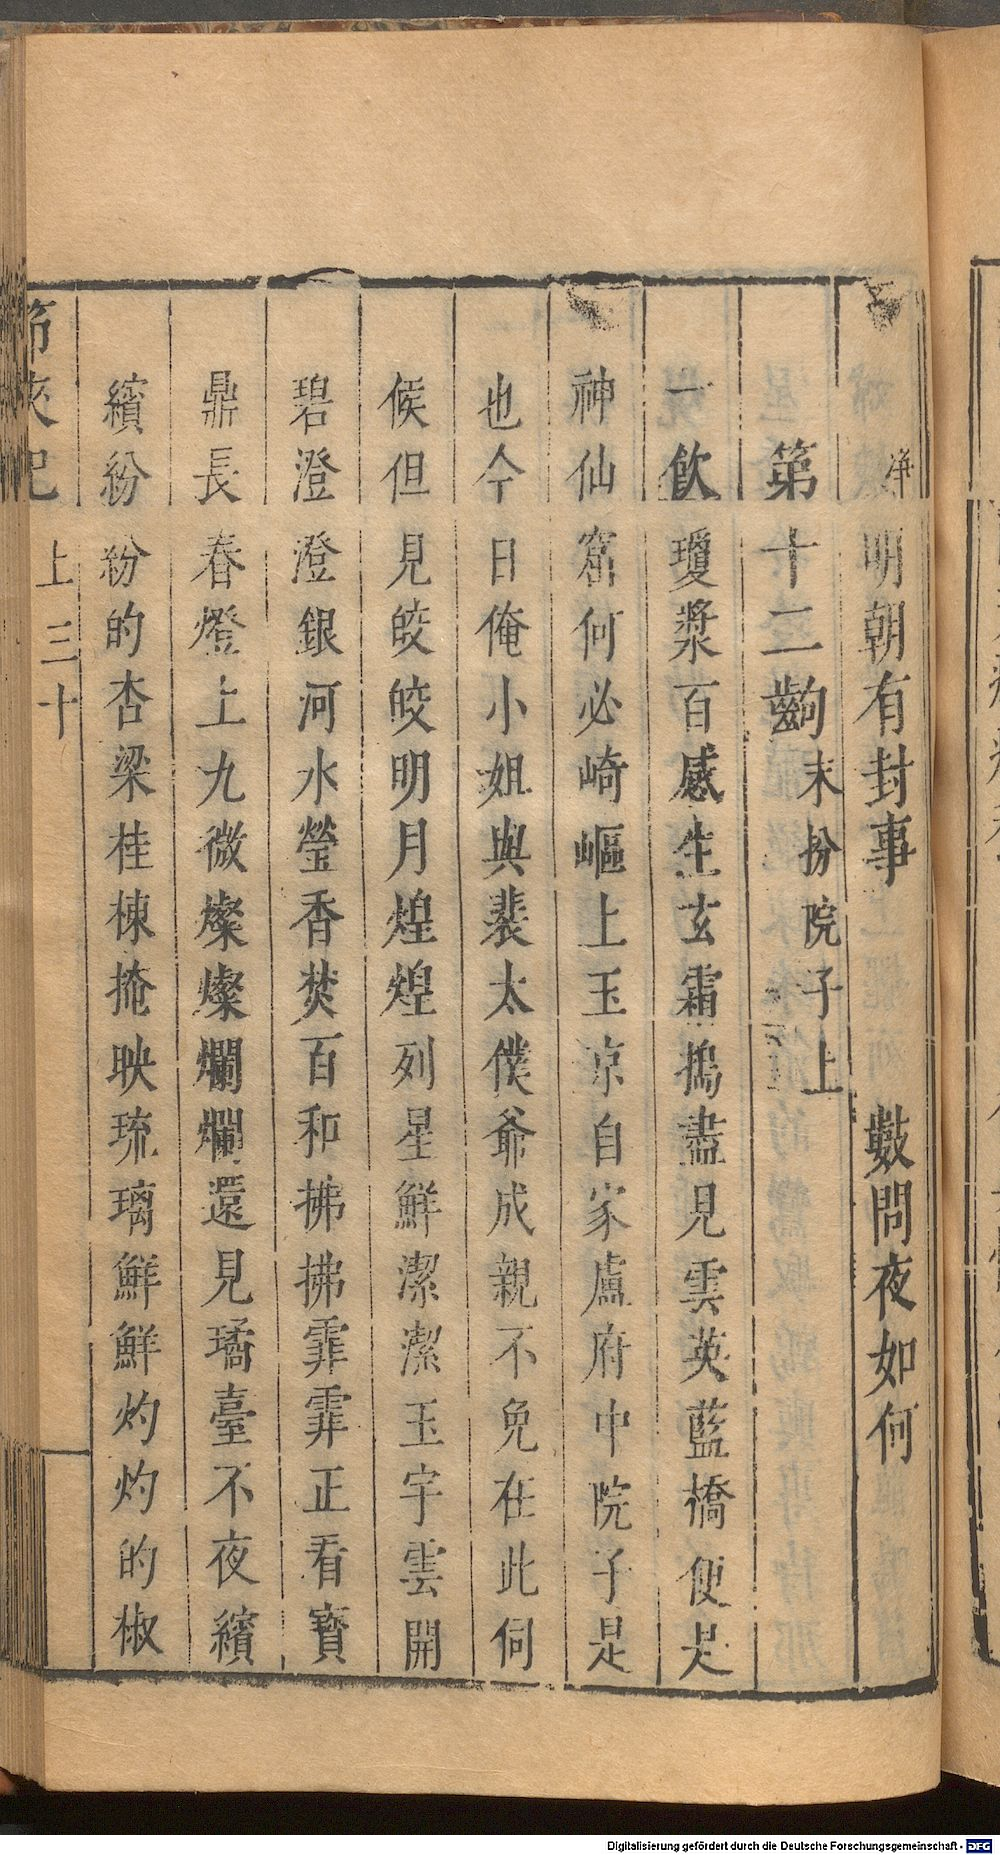 淨 明朝有封事 數問夜如何
第十二齣 末扮院子上
一飲瓊漿百感生玄霜搗盡見雲英藍橋便是
神仙窟何必崎嶇上玉京自家盧府中院子是
也今日俺小姐與裴太僕爺成親不免在此伺
候但見皎皎明月煌煌列星鮮潔潔玉宇雲開
碧澄澄銀河水瑩香焚百和拂拂霏霏正看寶
鼎長春燈上九微燦燦爛爛還見璚臺不夜繽
繽紛紛的杏梁桂棟掩映琉璃鮮鮮灼灼的椒
節俠記 上 三十
Digitalisierung gefördert durch die Deutsche Forschungsgemeinschaft - DFG